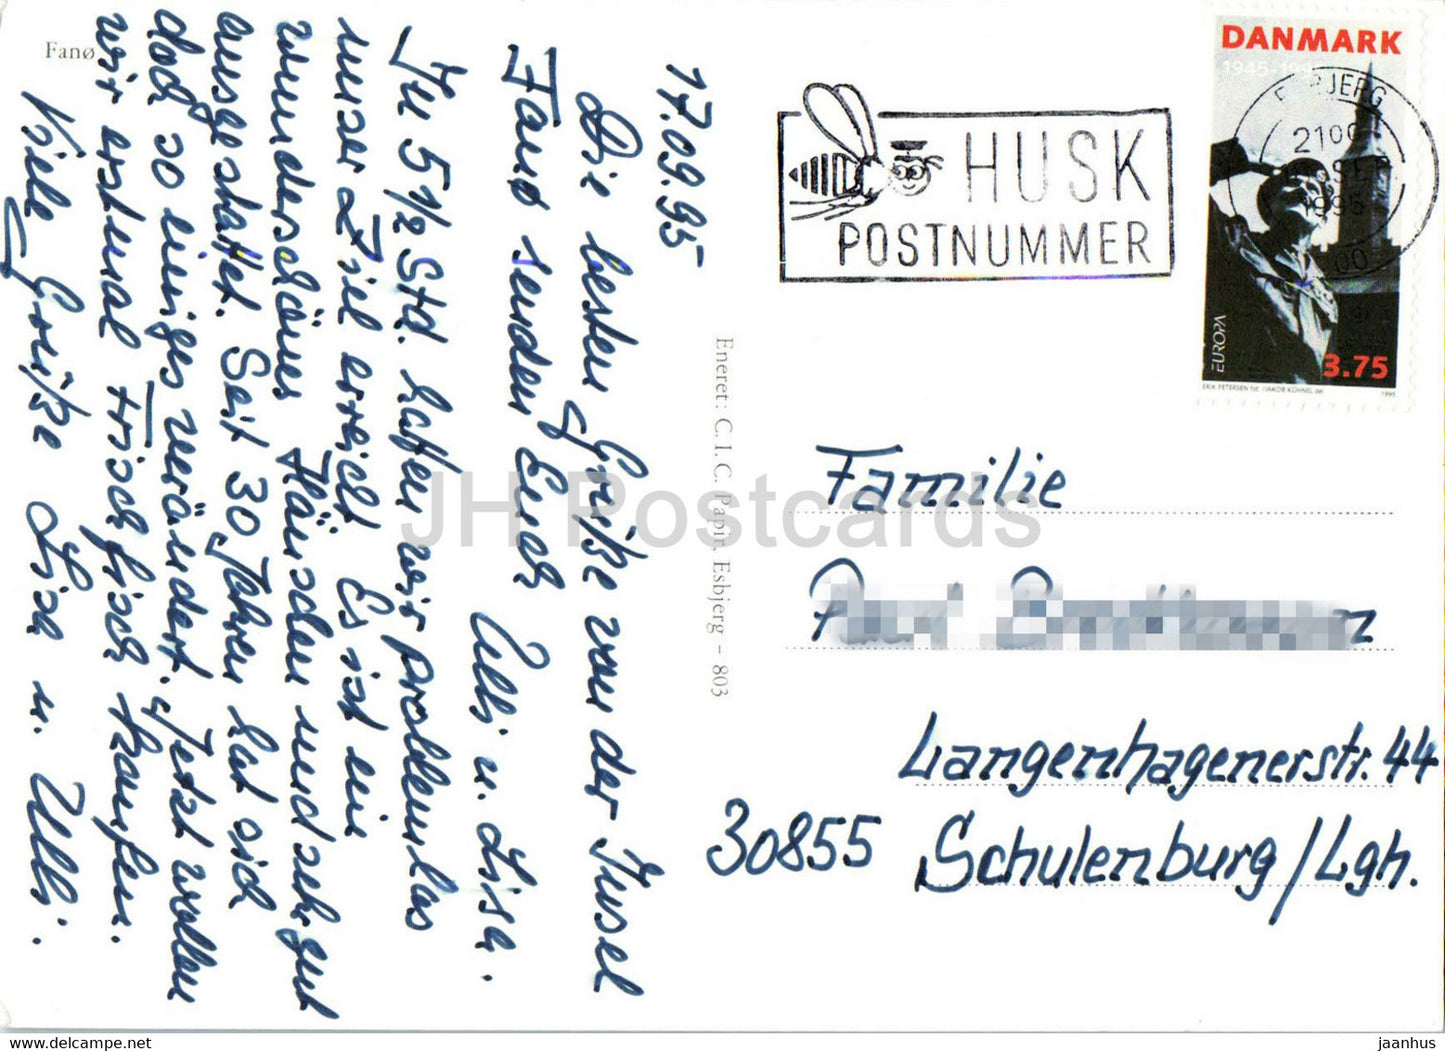 Fanø
17.09.95
Die besten Grüße von der Insel
Fanø senden Euch
Ulli u. Lisa.
In 5 1/2 Std. hatten wir problemlos
unser Ziel erreicht. Es ist ein
wunderschönes Häuschen und sehr gut
ausgestattet. Seit 30 Jahren hat sich
doch so einiges verändert. Jetzt wollen
wir erstmal Frischfisch kaufen.
Viele Grüße Lisa u. Ulli.
Eneret: C.I.C. Papir, Esbjerg – 803
HUSK
POSTNUMMER
DANMARK
1945-1995
1995
EUROPA
3.75
ERIK PETERSEN fot. / JAKOB KÜHNEL del.
1995
Familie
Langenhagenerstr. 44
30855 Schulenburg/Lgh.
JH Postcards
Fanø - www.delcampe.net
jaanhus